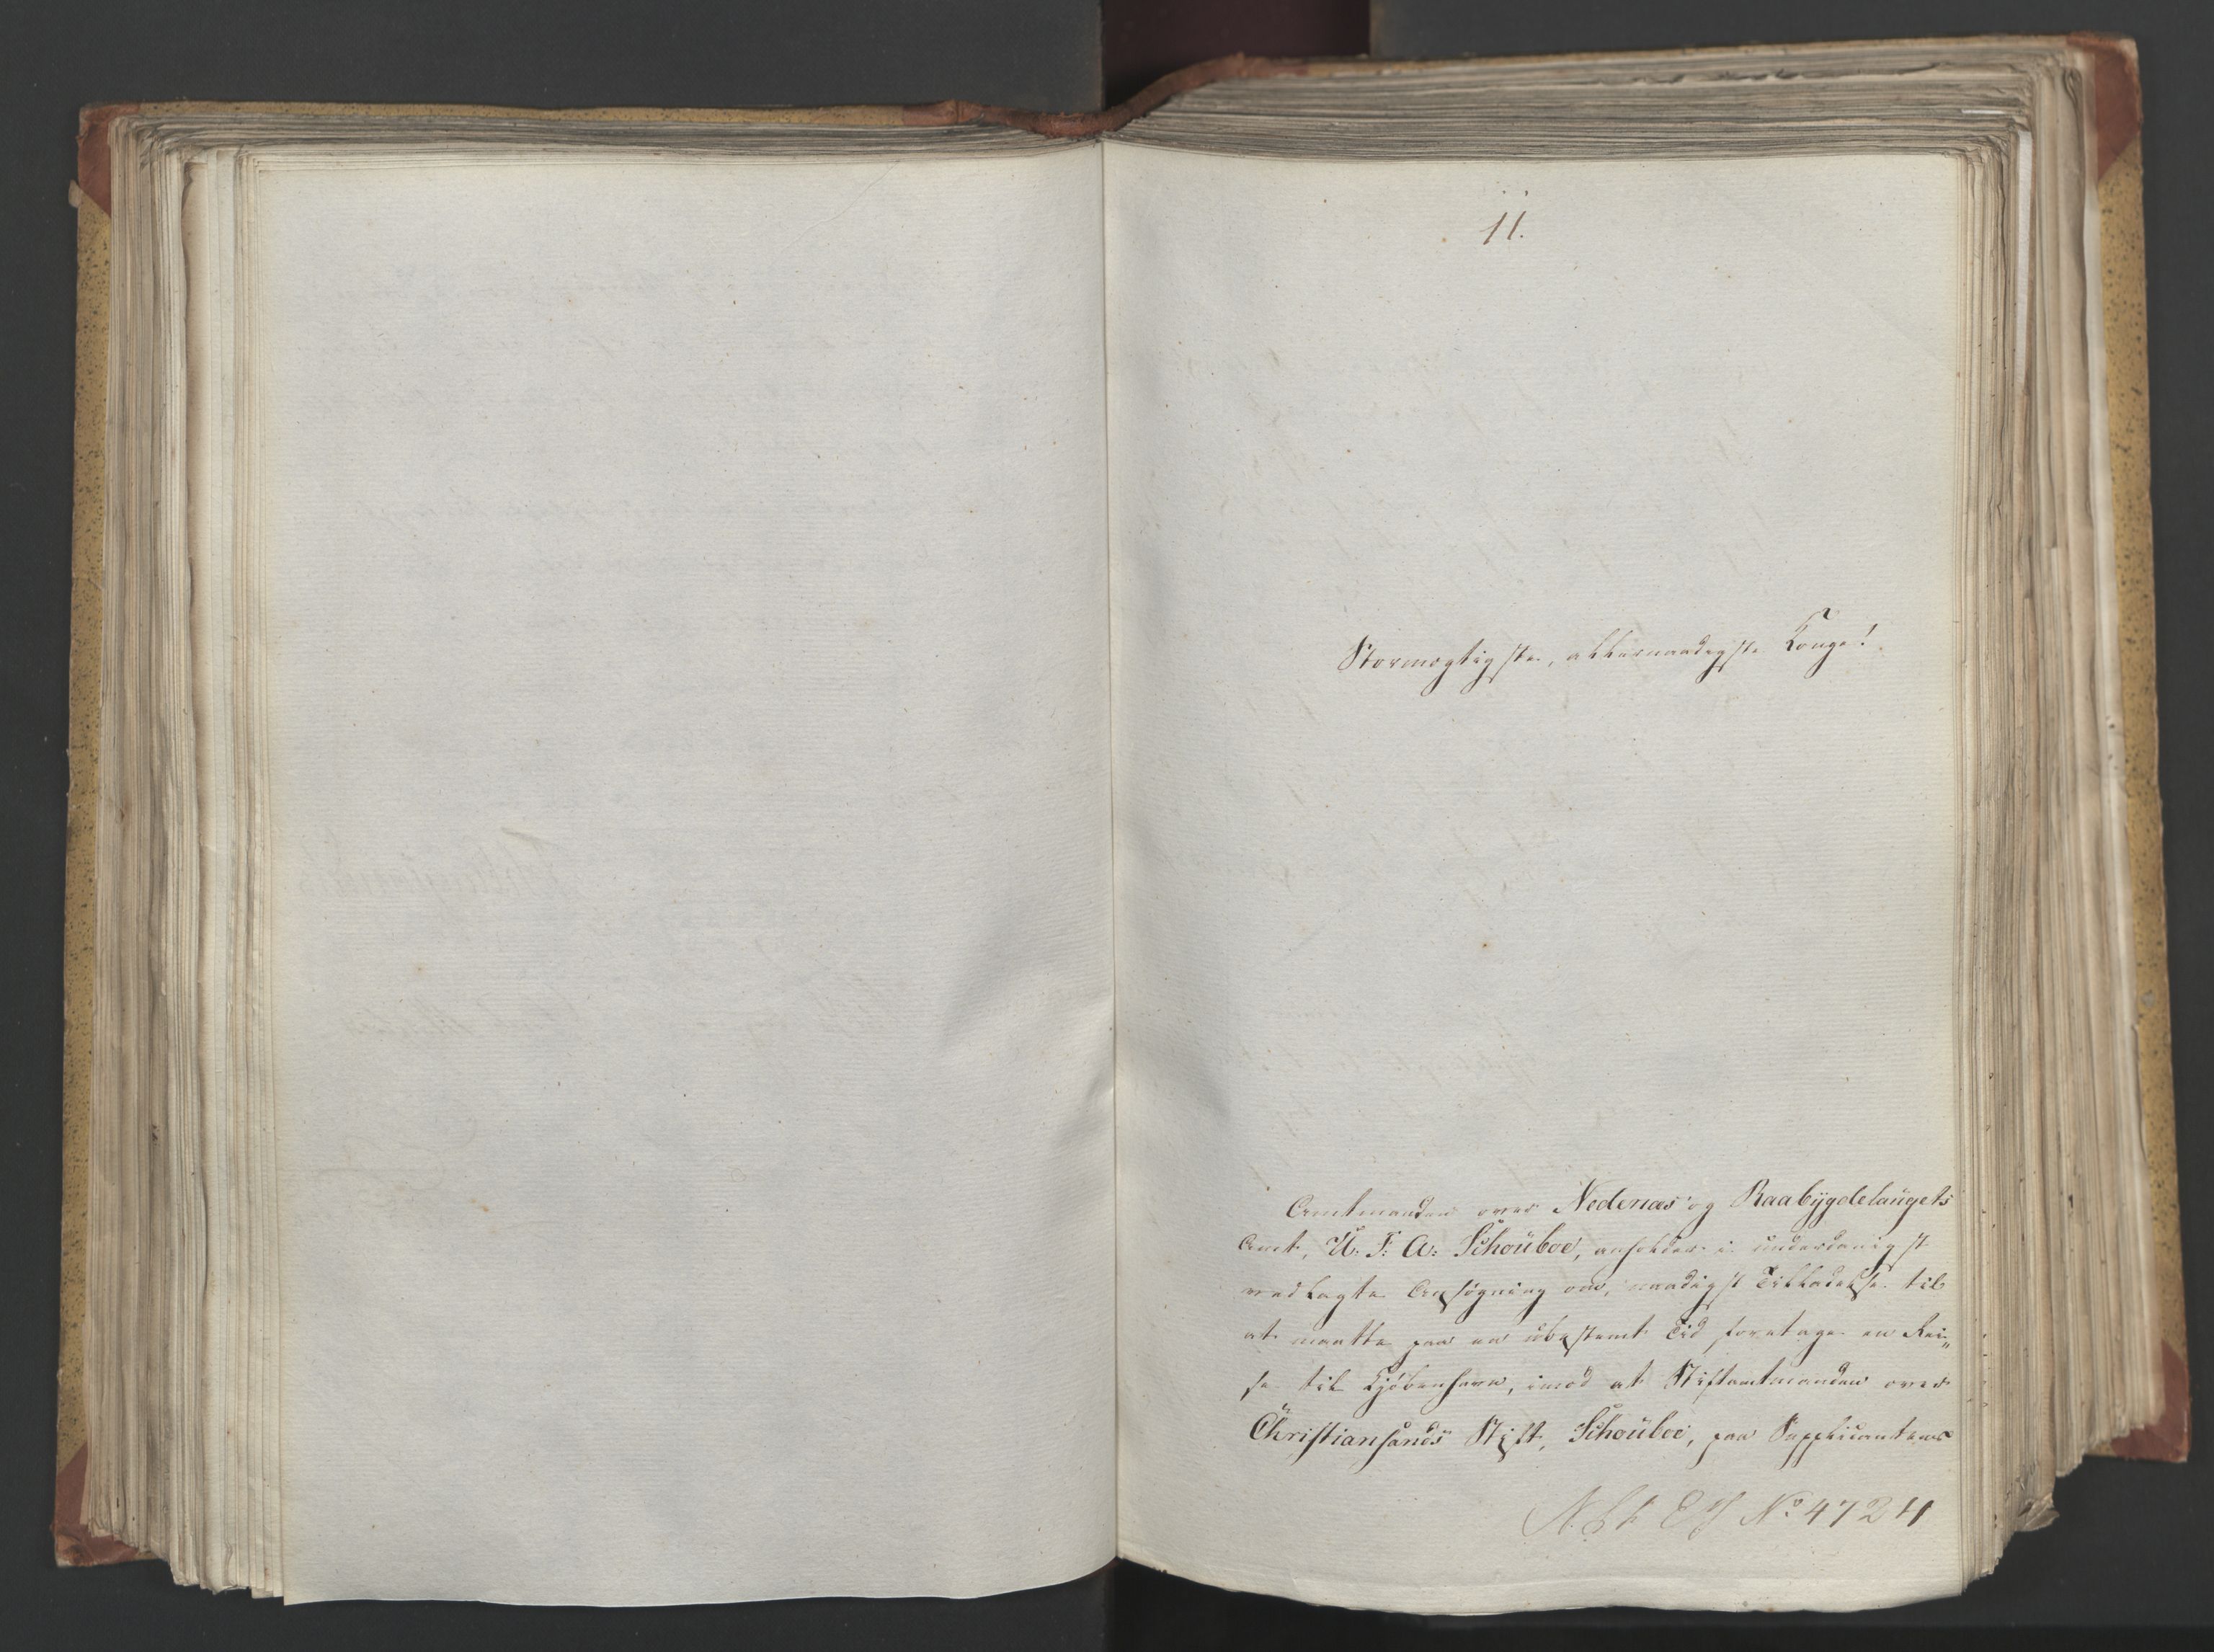 11.
Stormægtigste, allernaadigste Konge!
Amtmanden over Nedenæs og Raabÿgdelaugets
Amt, U. F. A. Schouboe, anholder i underdanigst
vedlagte Ansøgning om, naadigst Tilladelse til
at maatte paa en ubestemt Tid foretage en Rei„
se til Kjøbenhavn, imod at Stiftamtmanden over
Christiansands Stift, Schouboe, paa Supplicantens
No 4724